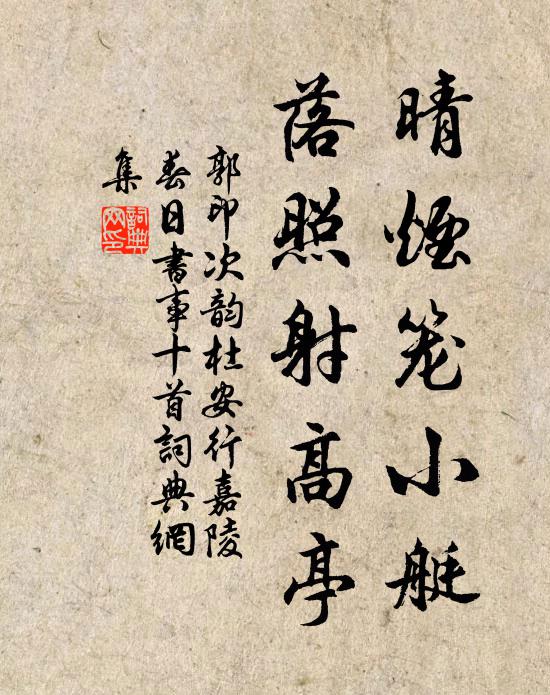 晴煙笼小艇
落照射高亭
郭印次韵杜安行嘉陵
春日書事十首詞典網
集
詞典网印